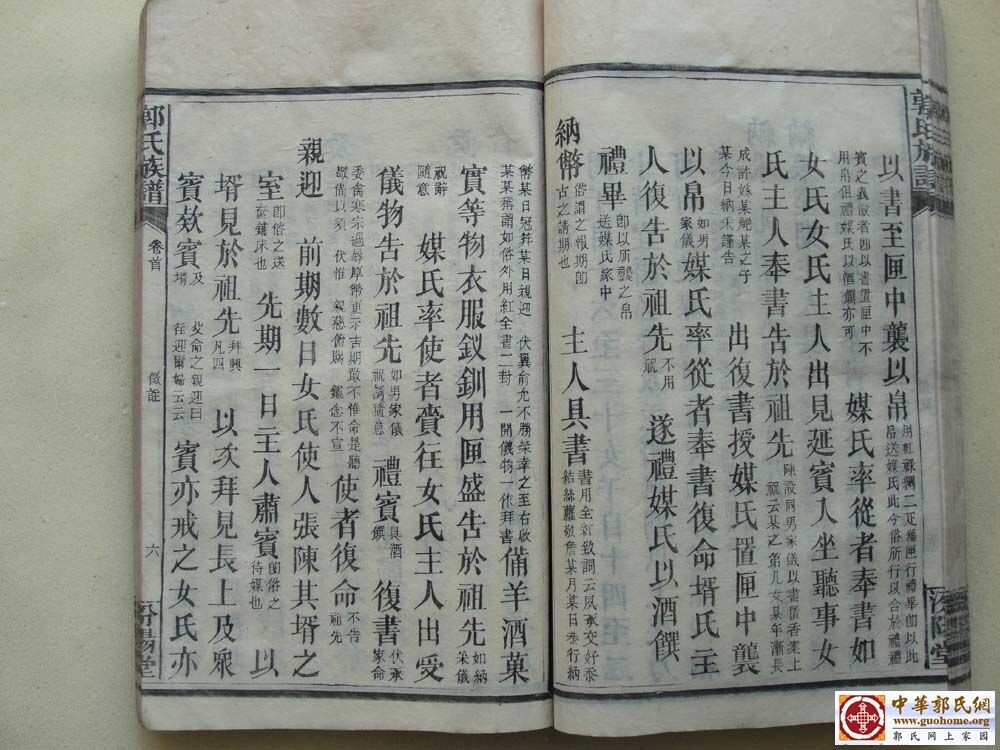 以書至匣中襲以帛用紅綠綢二疋鋪匣行禮畢卽以此帛送媒氏此今俗所行以合於禮禮
賓之義敬者卽以書置匣中不用帛但禮媒氏以酒饌亦可 媒氏率從者奉書如
女氏女氏主人出見延賓入坐聽事女
氏主人奉書告於祖先陳設同男家儀以書置香案上祝云某之第几女某年漸長
成許嫁某某之子某今日納采謹告 出復書授媒氏置匣中襲
以帛如男家儀媒氏率從者奉書復命壻氏主
人復告於祖先不用祝 遂禮媒氏以酒饌
禮畢卽以所襲之帛送媒氏家中
納幣俗謂之報期卽古之請期也 主人具書書用全紅致詞云夙承交好忝結絲蘿敬詹某月某日恭行納
幣某日冠笄某日親迎 伏冀俞允不勝榮幸之至右啟某某稱謂如俗外用紅全書二封 一開儀物一作拜書備羊酒菓
實等物衣服釵釧用匣盛告於祖先如納采儀
祝辭隨意 媒氏率使者賫往女氏主人出受
儀物告於祖先如男家儀祝詞隨意 禮賓具酒饌 復書伏承家命
委禽寒宗過辱厚幣更示吉期敢不惟命是聽敬備以須 伏惟 親慈俯賜 鑑念不宣使者復命不告祖先
親迎 前期數日女氏使人張陳其壻之
室卽俗之送奩鋪床也 先期一日主人肅賓卽俗之待媒也 以
壻見於祖先拜興凡四 以次拜見長上及眾
賓敘賓及壻父命之親迎曰往迎爾婦云云 賓亦戒之女氏亦
郭氏族譜 卷首 儀註 六 汾陽堂
中華郭氏網
www.guohome.org
郭氏网上家园